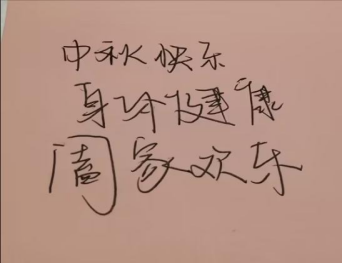 中秋快乐
身体健康
阖家欢乐